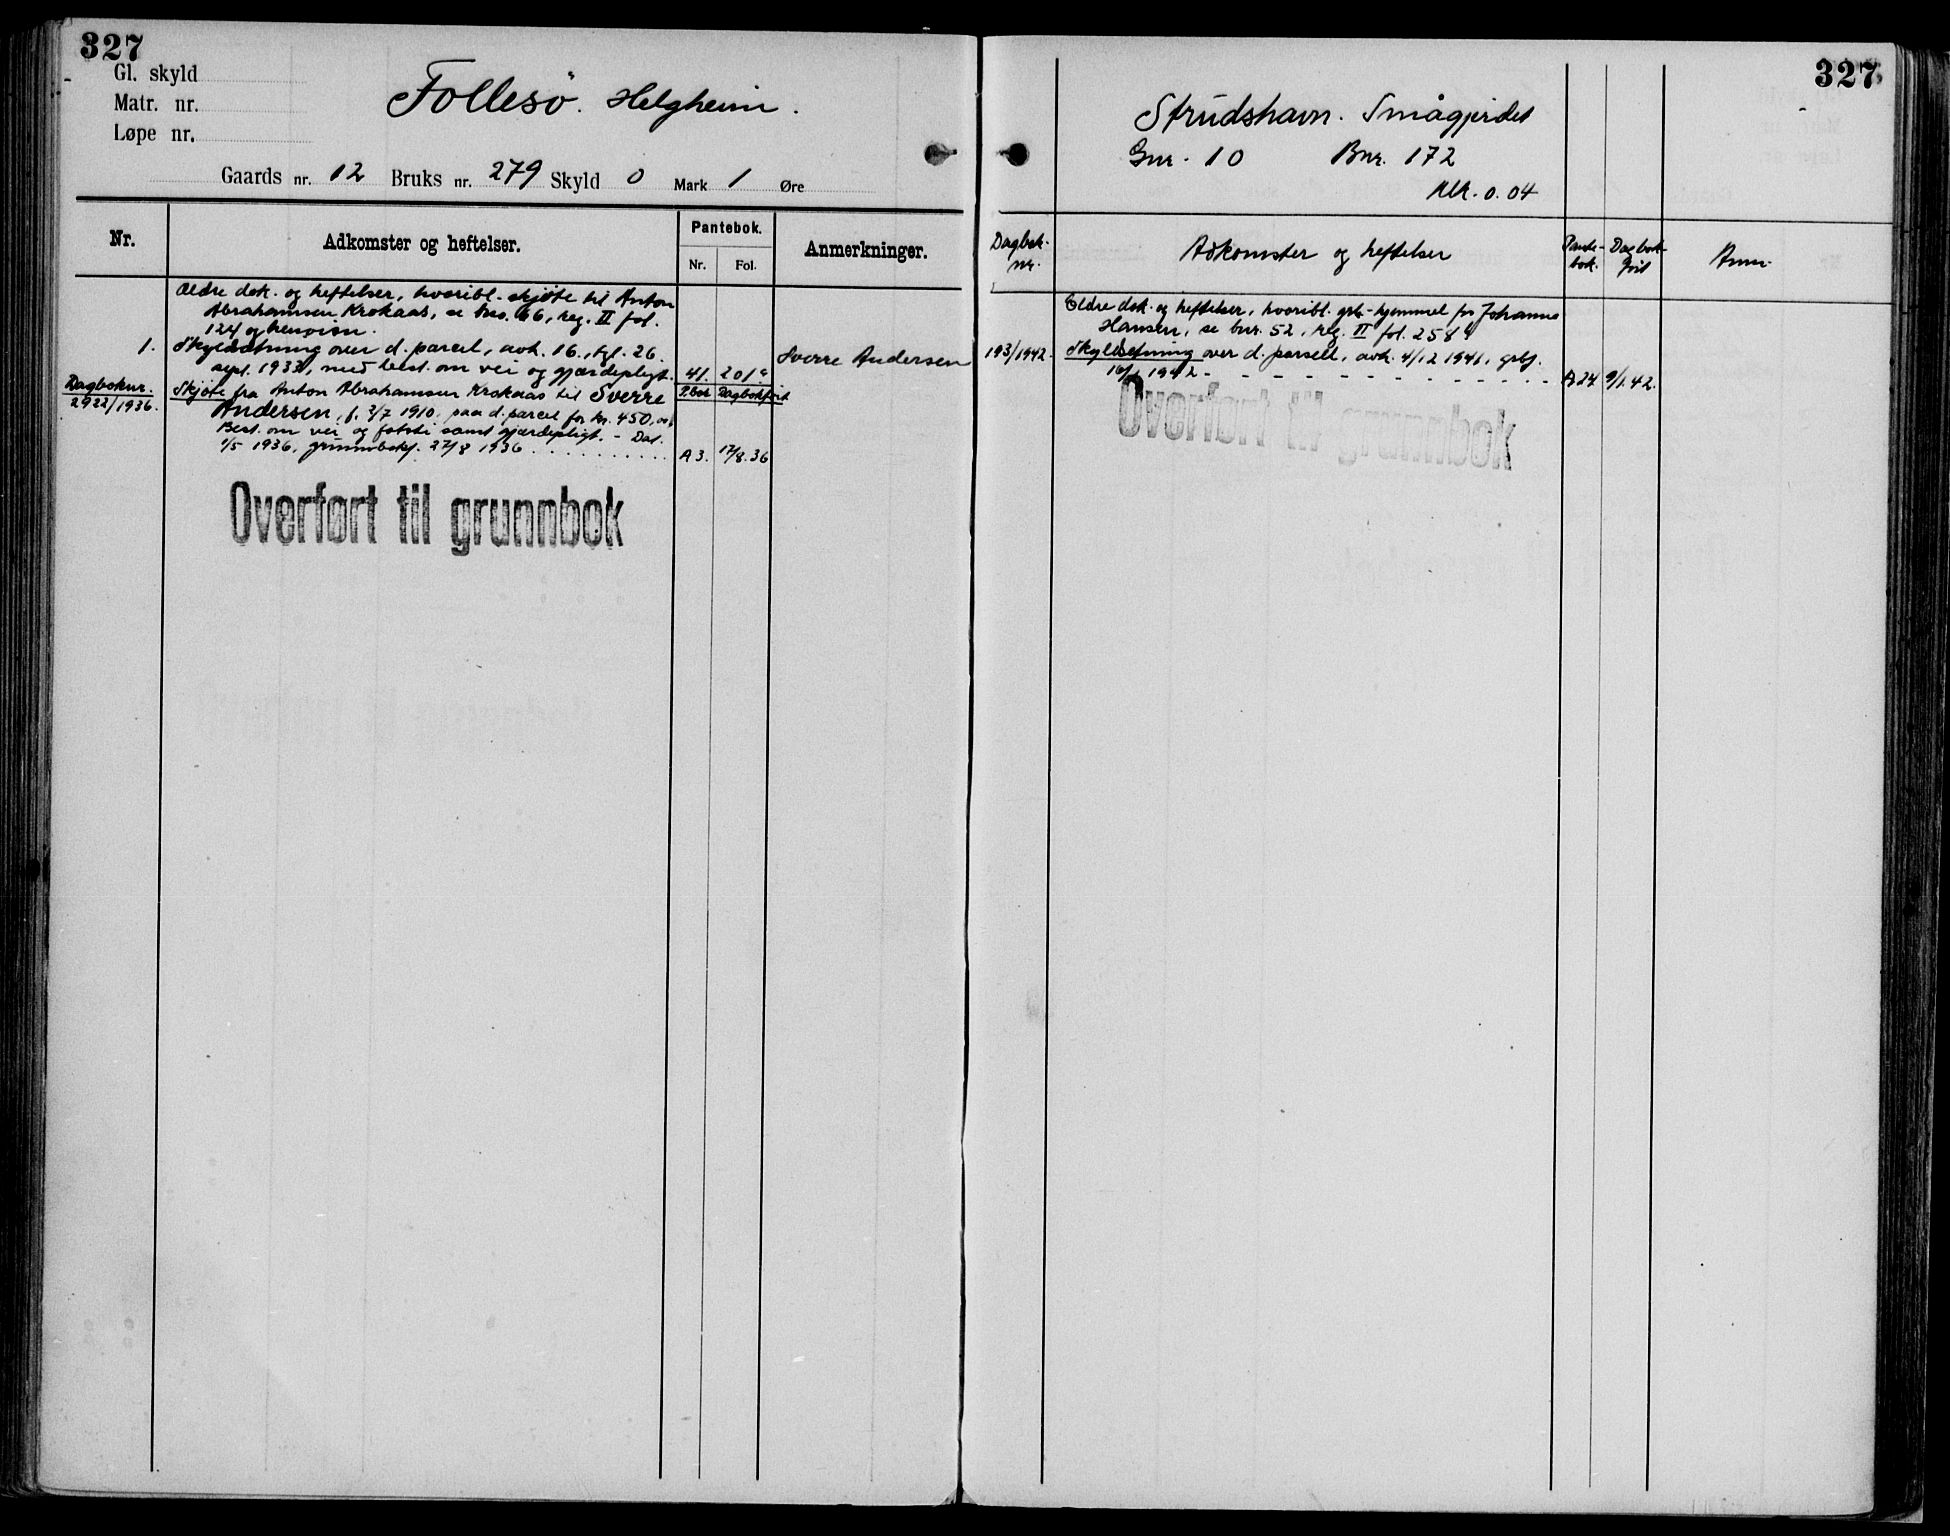 327
Gl. skyld
Matr. nr.
Løpe nr.
Follesö. Helgheim.
Gaards nr. 12 Bruks nr. 279 Skyld 0 Mark 1 Øre
Nr. Adkomster og heftelser. Pantebok. Anmerkninger.
Nr. Fol.
Ældre dok. og heftelser, hvoribl. skjöte til Anton
Abrahamsen Krokaas, se bno. 66, reg. II fol.
124 og
1. Skyldsetning over d. parcel, avh. 16., tgl. 26.
sept. 1933, med best. om vei og gjærdepligt. 41. 201 Sverre Andersen
Dagboknr. Skjöte fra Anton Abrahamsen Krokaas til Sverre P.bok Dagbokfört
2922/1936. Andersen, f. 3/7 1910, paa d. parcel for kr. 450,00
Best. om vei og fotsti samt gjærdepligt. - Dat.
1/5 1936, grunnbokf. 27/8 1936 . . . . . . . . . . A 3. 17/8.36
Overført til grunnbok
327
Strudshavn. Smågjerdet
Gnr. 10 Bnr. 172
Mk. 0.04
Dagbok- nr. Adkomster og heftelser Pante- bok. Dagbok- ført Anm.
Eldre dok. og heftelser, hvoribl. grb.-hjemmel for Johannes
Hansen, se bnr. 52, reg. II fol. 258
193/1942. Skyldsetning over d. parsell, avh. 4/12 1941, grbf.
16/1 1942 - - - - - - - - - - - - A 24 9/1.42.
Overført til grunnbok